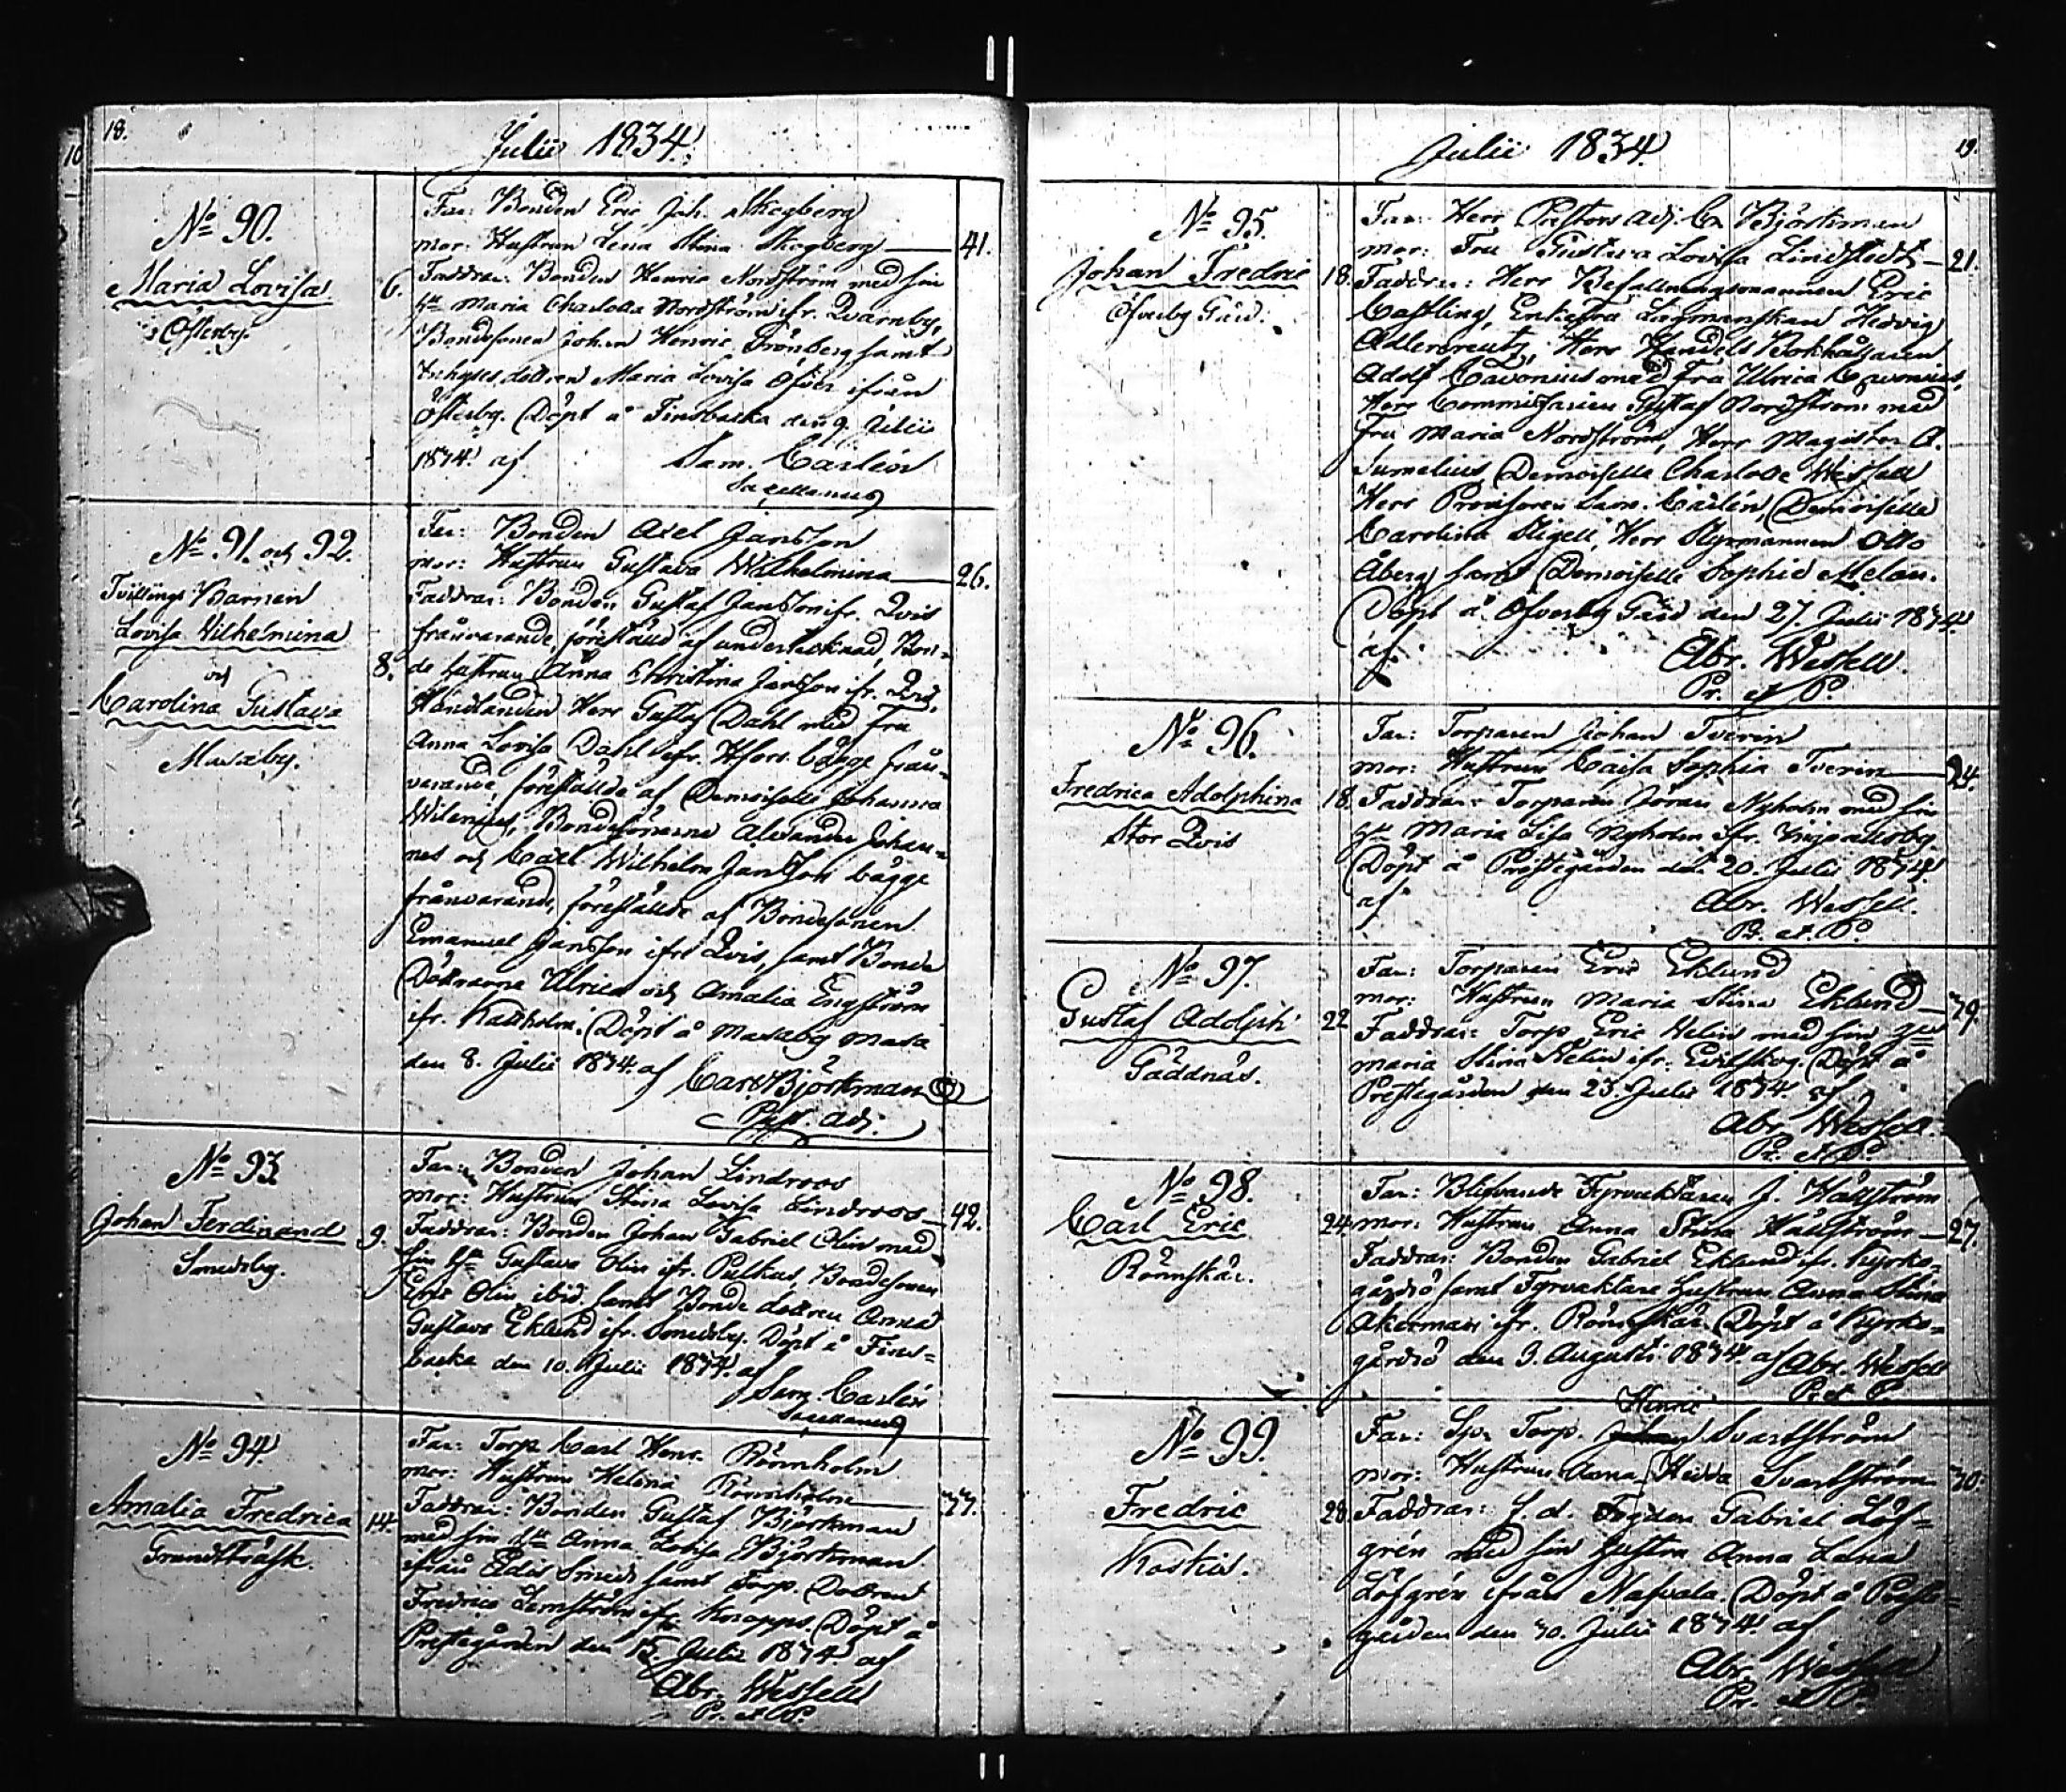 18.
Julii 1834.
No 90.
Maria Lovisa
Österby.
6.
Far: Bonden Eric Joh. Skogberg
mor: Hustrun Lena Stina Skogberg
41.
Faddrar: Bonden Henric Nordström med sin
Hu Maria Charlotta Nordström ifr. Qvarnby,
Bondesonen Johan Henric Grönberg samt
dottren Maria Lovisa ifrån
Österby. Döpt å Finsbacka den 9. Julii
1834. af Sam. Carlén
Sacellanus
No 91. och 92.
Tvillings Barnen
Lovisa Wilhelmina
och
Carolina Gustava
Masaby.
8.
Far: Bonden Axel Jansson
mor: Hustrun Gustava Wilhelmina
26.
Faddrar: Bonden Gustaf Jansson ifr. Qvis
frånvarande, föreställd af undertecknad, Bon-
de hustrun Anna Christina Jansson ifr. Qvis,
Handlanden Herr Gustaf Dahl med Fru
Anna Lovisa Dahl ifr. Hfors bägge från-
varande, föreställde af Demoiselle Johanna
Bondesönerne Alexander Johan-
nes och Carl Wilhelm Jansson bägge
frånvarande, föreställde af Bondesonen
Emanuel Jansson ifrå Qvis, samt Bonde
Döttrarna Ulrica och Amalia Engström
ifr. Kallholm. Döpt å Masaby Masa
den 8. Julii 1834. af Carl Björkman
Past. adj.
No 93.
Johan Ferdinand
Smedsby.
9.
Far: Bonden Johan Lindroos
mor: Hustrun Stina Lovisa Lindroos
42.
Faddrar: Bonden Johan Gabriel Olin med
sin Hu Gustava Olin ifr. Bondesonen
Olin ibid. samt Bonde dottren Anna
Gustava Eklund ifr. Smedsby. Döpt å Fins-
backa den 10. Julii 1834. af
Sam. Carlén
Sacellanus
No 94.
Amalia Fredrica
Grundträsk.
14.
Far: Torp. Carl Henr. Rönnholm
mor: Hustrun Helena Rönnholm
33.
Faddrar: Bonden Gustaf Björkman
med sin Hu Anna Lovisa Björkman
ifrån Smeds samt Torp. Dottren
Fredrica ifr. Knapps. Döpt å
Prestegården den 15. Julii 1834. af
Abr. Wessell
Pr. et P.
19.
Julii 1834.
No 95.
Johan Fredric
Öfverby Gård.
18.
Far: Herr Pastors Adj. C. Björkman
mor: Fru Gustava Lovisa Lindstedt
21.
Faddrar: Herr Befallningsmannen Eric
Castling, Enkefru Lagmanskan Hedvig
Adlercreutz, Herr Handels Bokhållaren
Adolf Cavonius med Fru Ulrica Cavonius,
Herr Commissarien Gustaf Nordström med
Fru Maria Nordström, Herr Magister A.
Sumelius, Demoiselle Charlotte Wessell
Herr Provisoren Sam. Carlén, Demoiselle
Carolina Stigell, Herr Styrmannen Otto
Åberg samt Demoiselle Sophie Melan.
Döpt å Öfverby Gård den 27. Julii 1834.
af. Abr. Wessell.
Pr. et P.
No 96.
Fredrica Adolphina
Stor Qvis
18.
Far: Torparen Johan Tverin
mor: Hustrun Caisa Sophia Tverin
24.
Faddrar: Torparen Jöran Nyholm med sin
Hu Maria Lisa Nyholm ifr.
Döpt å Prestegården den 20. Julii 1834.
af Abr. Wessell.
Pr. et P.
No 97.
Gustaf Adolph
Gäddnäs.
22
Far: Torparen Eric Eklund
mor: Hustrun Maria Stina Eklund
39.
Faddrar: Torp. Eric Helin med sin Hu
Maria Stina Helin ifr. Döpt å
Prestegården den 23. Julii 1834. af
Abr. Wessell
Pr. et P.
No 98.
Carl Eric
Rönnskär.
24.
Far: Blifvande Fyrvaktaren J. Hällström
mor: Hustrun Anna Stina Hällström
27.
Faddrar: Bonden Gabriel Eklund ifr. Kyrko-
gårdsö samt Fyrvaktare hustrun Anna Stina
Akerman ifr. Rönnskär. Döpt å Kyrko-
gårdsö den 3. Augusti 1834. af Abr. Wessell
Pr. et P.
No 99.
Fredric
Koskis.
28.
Henric
Far: Torp. Johan Svartström
mor: Hustrun Anna Hedda Svartström
30.
Faddrar: f. d. Fogden Gabriel Löf-
grén med sin hustru Anna Lena
Löfgrén ifrån Nasvala. Döpt å Preste-
gården den 30. Julii 1834. af
Abr. Wessell
Pr. et P.